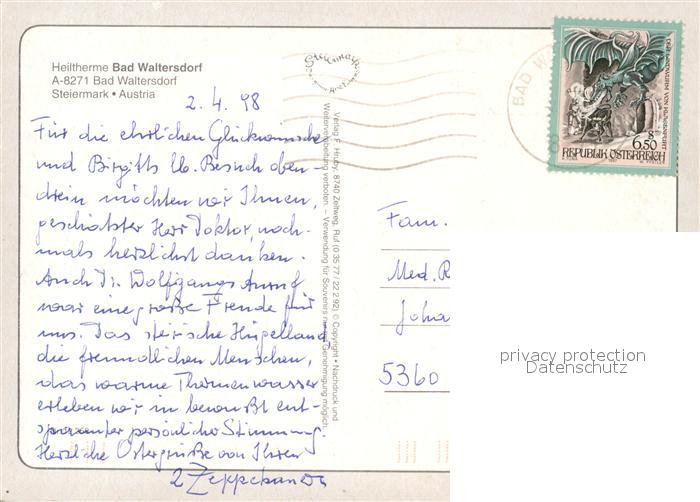 Heiltherme Bad Waltersdorf
A-8271 Bad Waltersdorf
Steiermark • Austria
2.4.98
Für die ehrlichen Glückwünsche
und Birgitts lb. Besuch oben-
drein möchten wir Ihnen,
geschätzter Herr Doktor, noch-
mals herzlichst danken.
Auch Dr. Wolfgangs Anruf
war eine große Freude für
uns. Das steirische Hügelland,
die freundlichen Menschen,
das warme Thermenwasser
erleben wir in bewußt ent-
spannter persönlicher Stimmung.
Herzliche Ostergrüße von Ihren
2
Steiermark
Verlag F. Hruby, 8740 Zeltweg, Ruf (0 35 77 / 22 2 92) © Copyright • Nachdruck und
Weiterverarbeitung verboten. – Verwendung für Souvenirs nur mit Genehmigung möglich.
BAD W
DER LINDWURM VON KLAGENFURT
S
6.50
REPUBLIK ÖSTERREICH
Fam.
Med. R
Joha
5360
privacy protection
Datenschutz